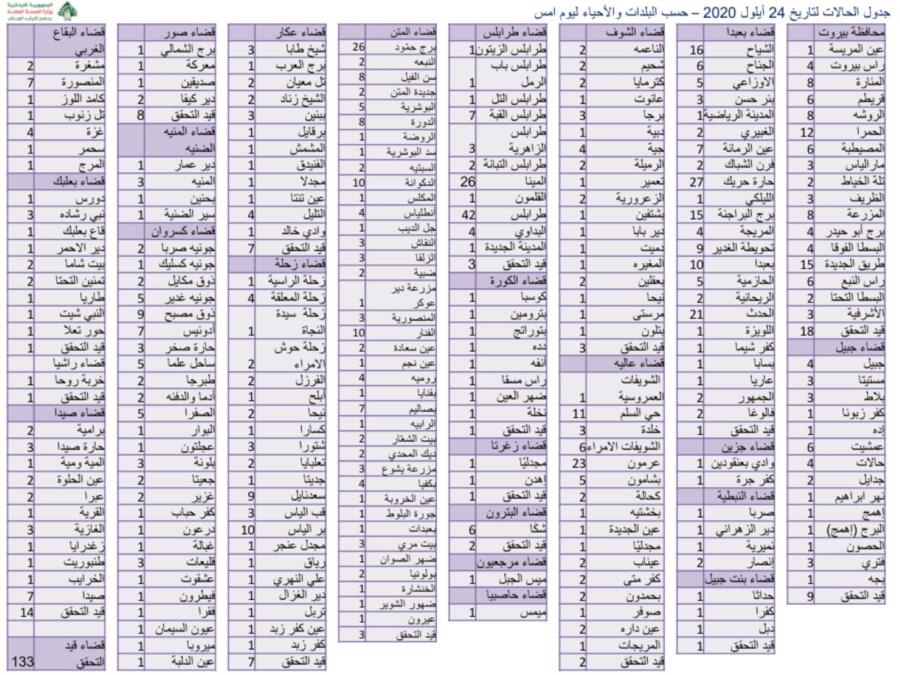 جدول الحالات لتاريخ 24 أيلول 2020 – حسب البلدات والأحياء ليوم امس
الجمهورية اللبنانية
وزارة الصحة العامة
محافظة بيروت
عين المريسة 1
راس بيروت 4
المنارة 8
قريطم 6
الروشه 8
الحمرا 12
المصيطبة 6
مار الياس 3
تلة الخياط 2
الظريف 3
المزرعة 8
برج أبو حيدر 4
البسطا الفوقا 4
طريق الجديدة 15
راس النبع 6
البسطا التحتا 2
الأشرفية 3
قيد التحقق 18
قضاء جبيل
جبيل 4
مستيتا 3
بلاط 3
كفر زبونا 1
إده 1
عمشيت 6
حالات 4
جدايل 2
نهر ابراهيم 1
إهمج 1
البرج (إهمج) 1
الحصون 1
فتري 3
بجه 1
قيد التحقق 9
قضاء بعبدا
الشياح 16
الجناح 6
الاوزاعي 5
بئر حسن 3
المدينة الرياضية 1
الغبيري 2
عين الرمانة 7
فرن الشباك 2
حارة حريك 27
الليلكي 1
برج البراجنة 15
المريجة 4
تحويطة الغدير 9
بعبدا 10
الحازمية 5
الريحانية 2
الحدث 21
اللويزة 1
كفر شيما 1
بسابا 1
عاريا 1
الجمهور 2
فالوغا 2
قيد التحقق 1
قضاء جزين
وادي بعنقودين 1
كفر جرة 1
قضاء النبطية
صربا 1
دير الزهراني 1
نميرية 1
إنصار 2
قضاء بنت جبيل
حداثا 1
كفرا 1
دبل 1
قيد التحقق 1
قضاء الشوف
الناعمه 2
شحيم 2
كترمايا 2
عانوت 1
برجا 3
دبية 1
جية 4
الرميلة 2
تعمير 1
الزعرورية 2
بشتفين 1
دير بابا 1
دميت 1
المغيره 1
بعقلين 2
نيحا 1
مرستي 1
بتلون 1
قيد التحقق 3
قضاء عاليه
الشويفات
العمروسية 1
حي السلم 11
خلدة 3
الشويفات الامراء 6
عرمون 23
بشامون 5
كحالة 2
بخشتيه 1
عين الجديدة 1
مجدليّا 1
عيناب 2
كفر متى 2
بحمدون 2
صوفر 1
عين داره 2
المريجات 1
قيد التحقق 2
قضاء طرابلس
طرابلس الزيتون 1
طرابلس باب
الرمل 1
طرابلس التل 1
طرابلس القبة 7
طرابلس
الزاهرية 3
طرابلس التبانة 2
المينا 26
القلمون 1
طرابلس 42
البداوي 4
المدينة الجديدة 1
قيد التحقق 3
قضاء الكورة
كوسبا 1
بترومين 1
بتوراتج 1
دده 1
أنفه 1
راس مسقا 1
ضهر العين 1
نخلة 1
قيد التحقق 1
قضاء زغرتا
مجدليّا 1
إهدن 1
قيد التحقق 1
قضاء البترون
شكا 6
قيد التحقق 2
قضاء مرجعيون
ميس الجبل 1
قضاء حاصبيا
ميمس 1
قضاء المتن
برج حمّود 26
النبعه 2
سن الفيل 8
جديدة المتن 2
البوشرية 5
الدورة 8
الروضة 1
سد البوشرية 1
السبتيه 2
الدكوانة 10
المكلس 1
أنطلياس 4
جل الديب 1
النقاش 3
الزلقا 3
ضبية 2
مزرعة دير
عوكر 1
المنصورية 3
الفنار 10
عين سعادة 2
عين نجم 1
روميه 4
بقنايا 1
بصاليم 7
الرابيه 1
بيت الشعّار 2
ديك المحدي 2
مزرعة يشوع 3
بكفيا 4
عين الخروبة 1
جورة البلوط 1
بعبدات 1
بيت مري 3
ضهر الصوان 1
بولونيا 2
الخنشارة 1
ضهور الشوير 1
عيرون 1
قيد التحقق 3
قضاء عكار
شيخ طابا 3
برج العرب 1
تل معيان 2
الشيخ زناد 2
ببنين 3
برقايل 1
المشمش 1
القنيدق 1
مجدلا 1
عين تنتا 1
التليل 4
وادي خالد 1
قيد التحقق 7
قضاء زحلة
زحلة الراسية 1
زحلة المعلقة 4
زحلة سيدة
النجاة 1
زحلة حوش
الامراء 2
الفرزل 2
أبلح 1
نيحا 2
كسارا 1
شتورا 3
تعلبايا 2
جديتا 1
سعدنايل 9
قب الياس 3
بر الياس 10
مجدل عنجر 1
رياق 1
علي النهري 1
دير الغزال 1
تربل 1
عين كفر زبد 1
كفر زبد 1
قيد التحقق 7
قضاء صور
برج الشمالي 1
معركة 1
صديقين 1
دير كيفا 2
قيد التحقق 8
قضاء المنيه
الضنيه
دير عمار 1
المنيه 3
بحنين 1
سير الضنية 1
قضاء كسروان
جونيه صربا 2
جونيه كسليك 1
ذوق مكايل 2
جونيه غدير 5
ذوق مصبح 9
أدونيس 7
حارة صخر 3
ساحل علما 5
طبرجا 2
أدما والدفنه 2
الصفرا 5
البوار 1
عجلتون 1
بلونة 3
جعيتا 2
غزير 2
كفر حباب 1
درعون 1
غبالة 1
قليعات 3
عشقوت 1
فيطرون 1
فقرا 1
عيون السيمان 1
ميروبا 1
عين الدلبة 1
قضاء البقاع
الغربي
مشغرة 2
المنصورة 7
كامد اللوز 1
تل زنوب 1
غزة 4
سحمر 1
المرج 1
قضاء بعلبك
دورس 1
نبي رشاده 3
قاع بعلبك 1
دير الاحمر 1
بيت شاما 2
تمنين التحتا 2
طاريا 1
النبي شيت 1
حور تعلا 1
قيد التحقق 1
قضاء راشيا
خربة روحا 1
قيد التحقق 1
قضاء صيدا
برامية 2
حارة صيدا 3
المية ومية 1
عين الحلوة 2
عبرا 2
القرية 1
الغازية 3
زغدرايا 1
طنبوريت 1
الخرايب 1
صيدا 7
قيد التحقق 14
قضاء قيد
التحقق 133